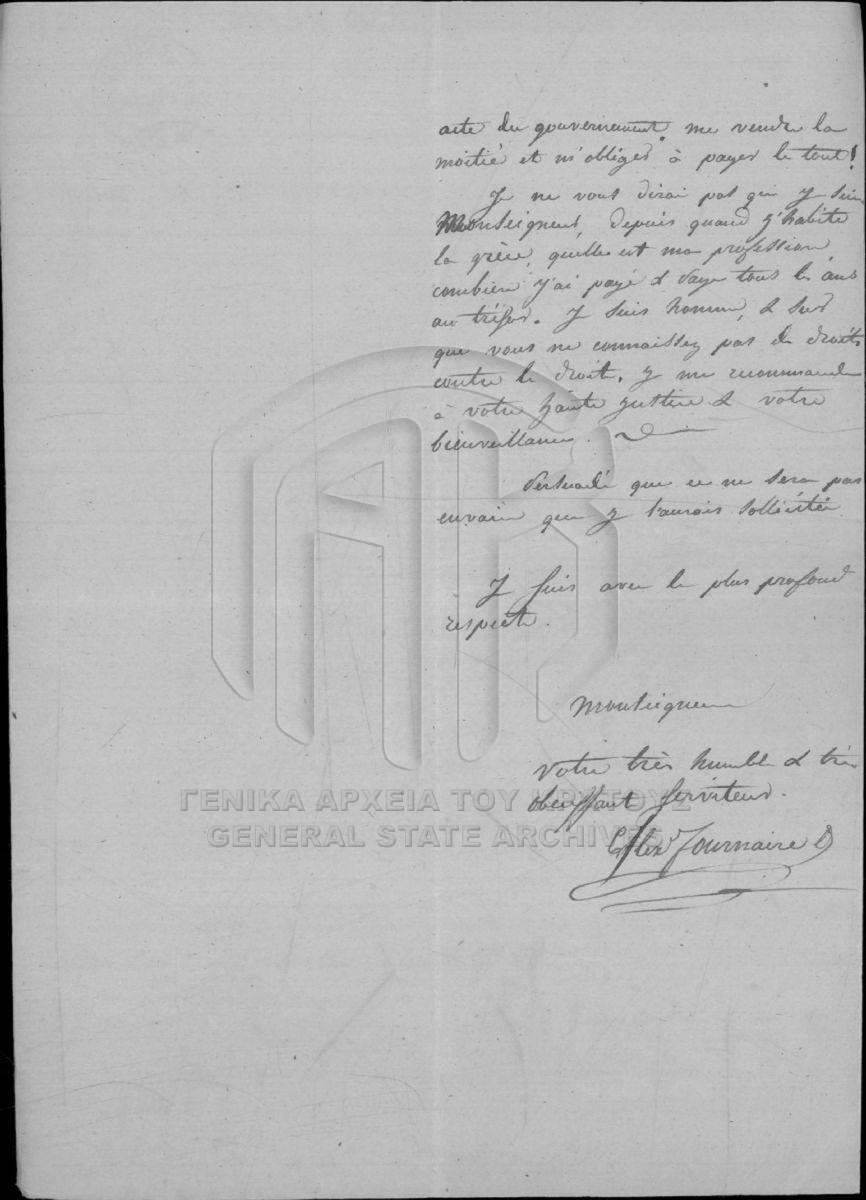 acte du gouvernement. me vendre la
moitié et m'obliger à payer le tout!
Je ne vous dirai pas qui j suis
Monseigneur, depuis quand j'habite
la grèce, quelle est ma profession,
combien j'ai payé & paye tous les ans
au trésor. J suis homme, & sur
que vous ne connaissez pas de droits
contre le droit, j me recommande
à votre haute justice & votre
bienveillance.
Persuadé que ce ne sera pas
envain que j l'aurais sollicitée
J suis avec le plus profond
respect.
Monseigneur
Votre très humble & très
obeissant serviteur.
Alexd Journaire
ΓΕΝΙΚΑ ΑΡΧΕΙΑ ΤΟΥ ΚΡΑΤΟΥΣ
GENERAL STATE ARCHIVES